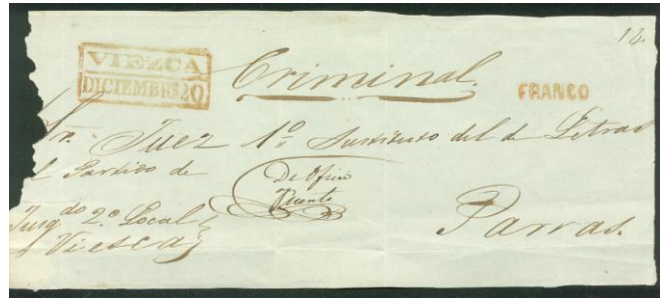 14
VIEZCA
DICIEMBRE 20
Criminal.
FRANCO
Sr. Juez 1º Sustituto del de Letras
l Partido de
De Oficio
Parras.
Juzg.do 2.º Local
Viesca